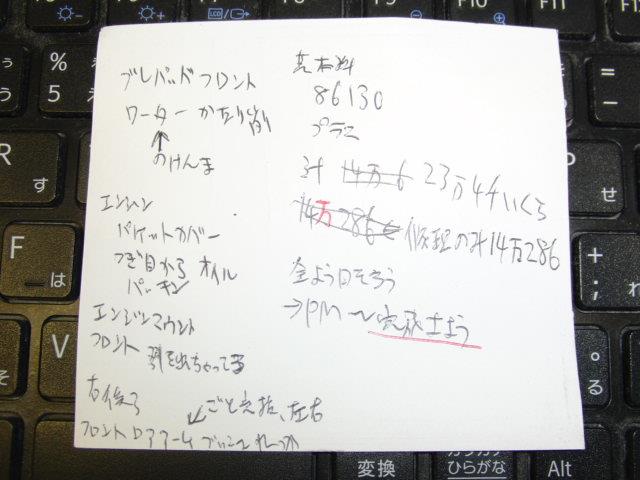 ブレパッドフロント
ローター かたり削り
↑
のけんま
エンジン
パケットカバー
つぎ目から オイル
パッキン
エンジンマウント
フロント
右後ろ
ごと交換、左右
フロントロアアーム
基本料
86130
プラス
計 14万6 23万4千いくら
14万286 修理のみ14万286
金ようロそろう
→PM〜完成土よう
% 5 え
R す
F は
V
そ
+ ;
れ
る
変換
カタカナ
ひらがな
Alt
LCD
F10
F11
F12